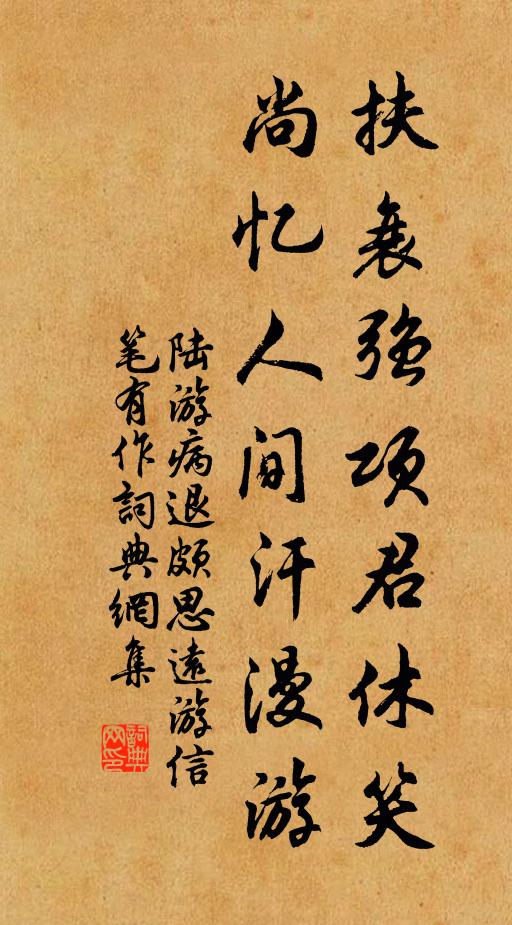 扶衰強项君休笑
尚忆人间汗漫游
陆游病退颇思遠游信
笔有作詞典網集
詞典
网印